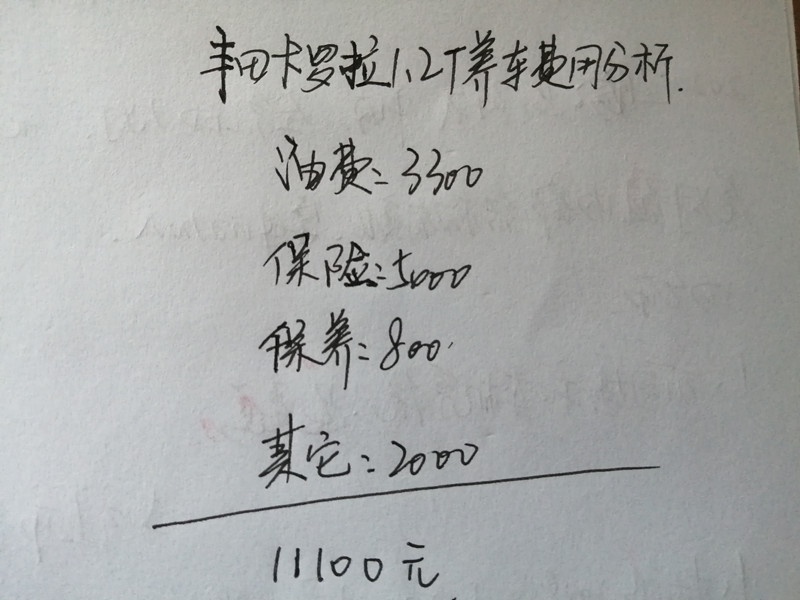 丰田卡罗拉1.2T养车费用分析.
油费:3300
保险:5000
保养:800.
其它:2000
11100元